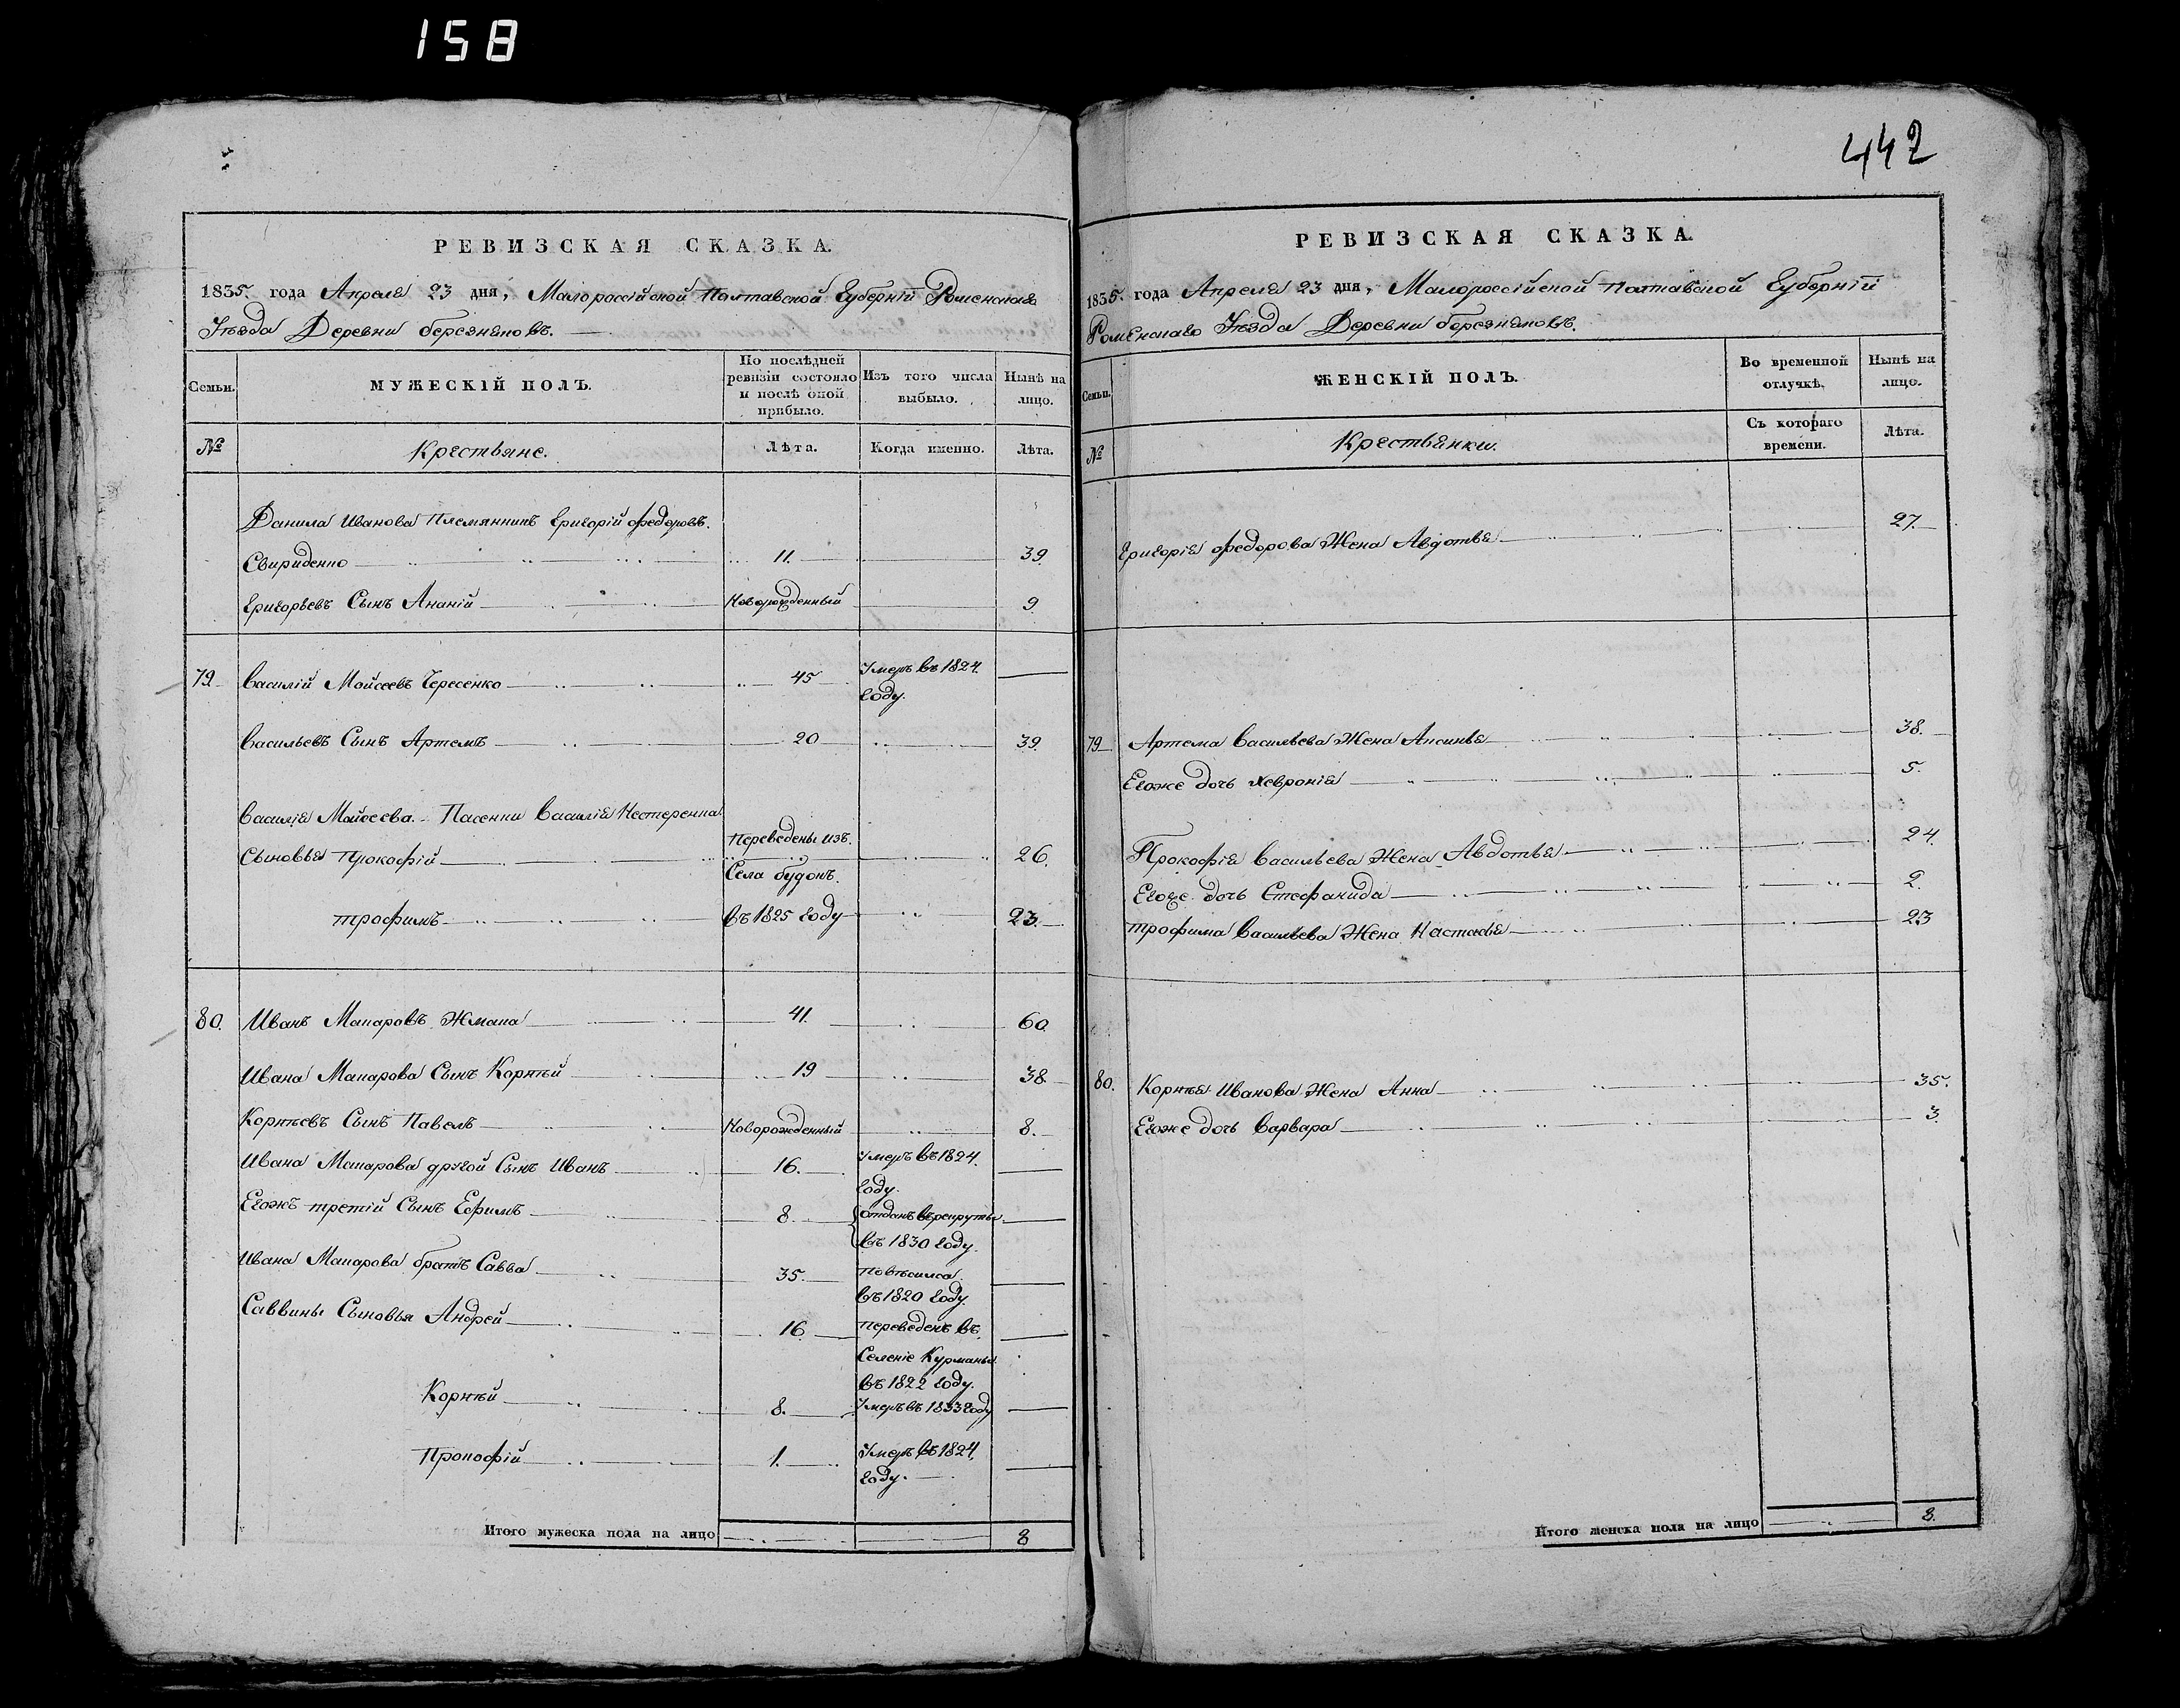 158
РЕВИЗСКАЯ СКАЗКА.
1835. года Апреля 23 дня, Малороссійской Полтавской Губерніи Роменскаго
Уѣзда Деревни Березняковъ.
Семьи.
МУЖЕСКІЙ ПОЛЪ.
По послѣдней
ревизіи состояло
и послѣ оной
прибыло.
Изъ того числа
выбыло.
Нынѣ на
лицо.
№
Крестьяне.
Лѣта.
Когда именно.
Лѣта.
Данила Иванова Племянникъ Григорій Федоровъ.
Свириденко 11. 39
Григорьевъ Сынъ Ананій Новорожденный 9
79 Василій Мойсеевъ Чересенко 45 Умеръ въ 1824.
году.
Васильевъ Сынъ Артемъ 20 39.
Василія Мойсеева Пасенки Василія Нестеренка
Переведены изъ.
Сыновья Прокофій 26.
Села будокъ.
Трофимъ въ 1825 году 23.
80. Иванъ Макаровъ Жмака 41. 60.
Ивана Макарова Сынъ Корнѣй 19 38.
Корнѣевъ Сынъ Павелъ Новорожденный 8.
Ивана Макарова другой Сынъ Иванъ 16. Умеръ въ 1824.
году.
Егожъ третій Сынъ Ефимъ 8. отданъ въ рекруты
въ 1830 году.
Ивана Макарова братъ Савва 35. повѣсился
въ 1820 году.
Саввины Сыновья Андрей 16. переведенъ въ
Селеніе Курманы
въ 1822 году.
Корнѣй 8. Умеръ въ 1833 году
Прокофій 1. Умеръ въ 1824.
году.
Итого мужеска пола на лицо 8
442
РЕВИЗСКАЯ СКАЗКА.
1835. года Апреля 23 дня, Малороссійской Полтавской Губерніи
Роменскаго Уѣзда Деревни Березняковъ.
Семьи.
ЖЕНСКІЙ ПОЛЪ.
Во временной
отлучкѣ.
Нынѣ на
лицо.
№
Крестьянки.
Съ котораго
времени.
Лѣта.
Григорія Федорова Жена Авдотья 27.
79 Артема Васильева Жена Аксинья 38.
Егоже дочь Хевронія 5.
Прокофія Васильева Жена Авдотья 24
Егоже дочь Стефанида 2.
Трофима Васильева Жена Настасья 23
80. Корнѣя Иванова Жена Анна 35.
Егоже дочь Варвара 3.
Итого женска пола на лицо 8.